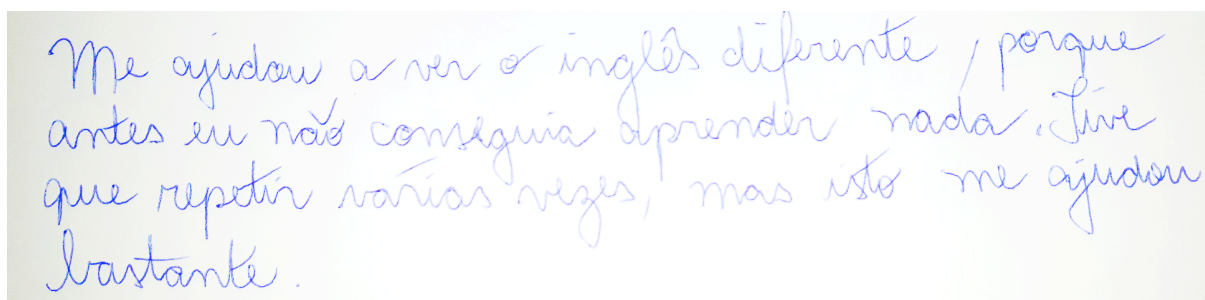 Me ajudou a ver o inglês diferente, porque
antes eu não conseguia aprender nada. Tive
que repetir várias vezes, mas isto me ajudou
bastante.